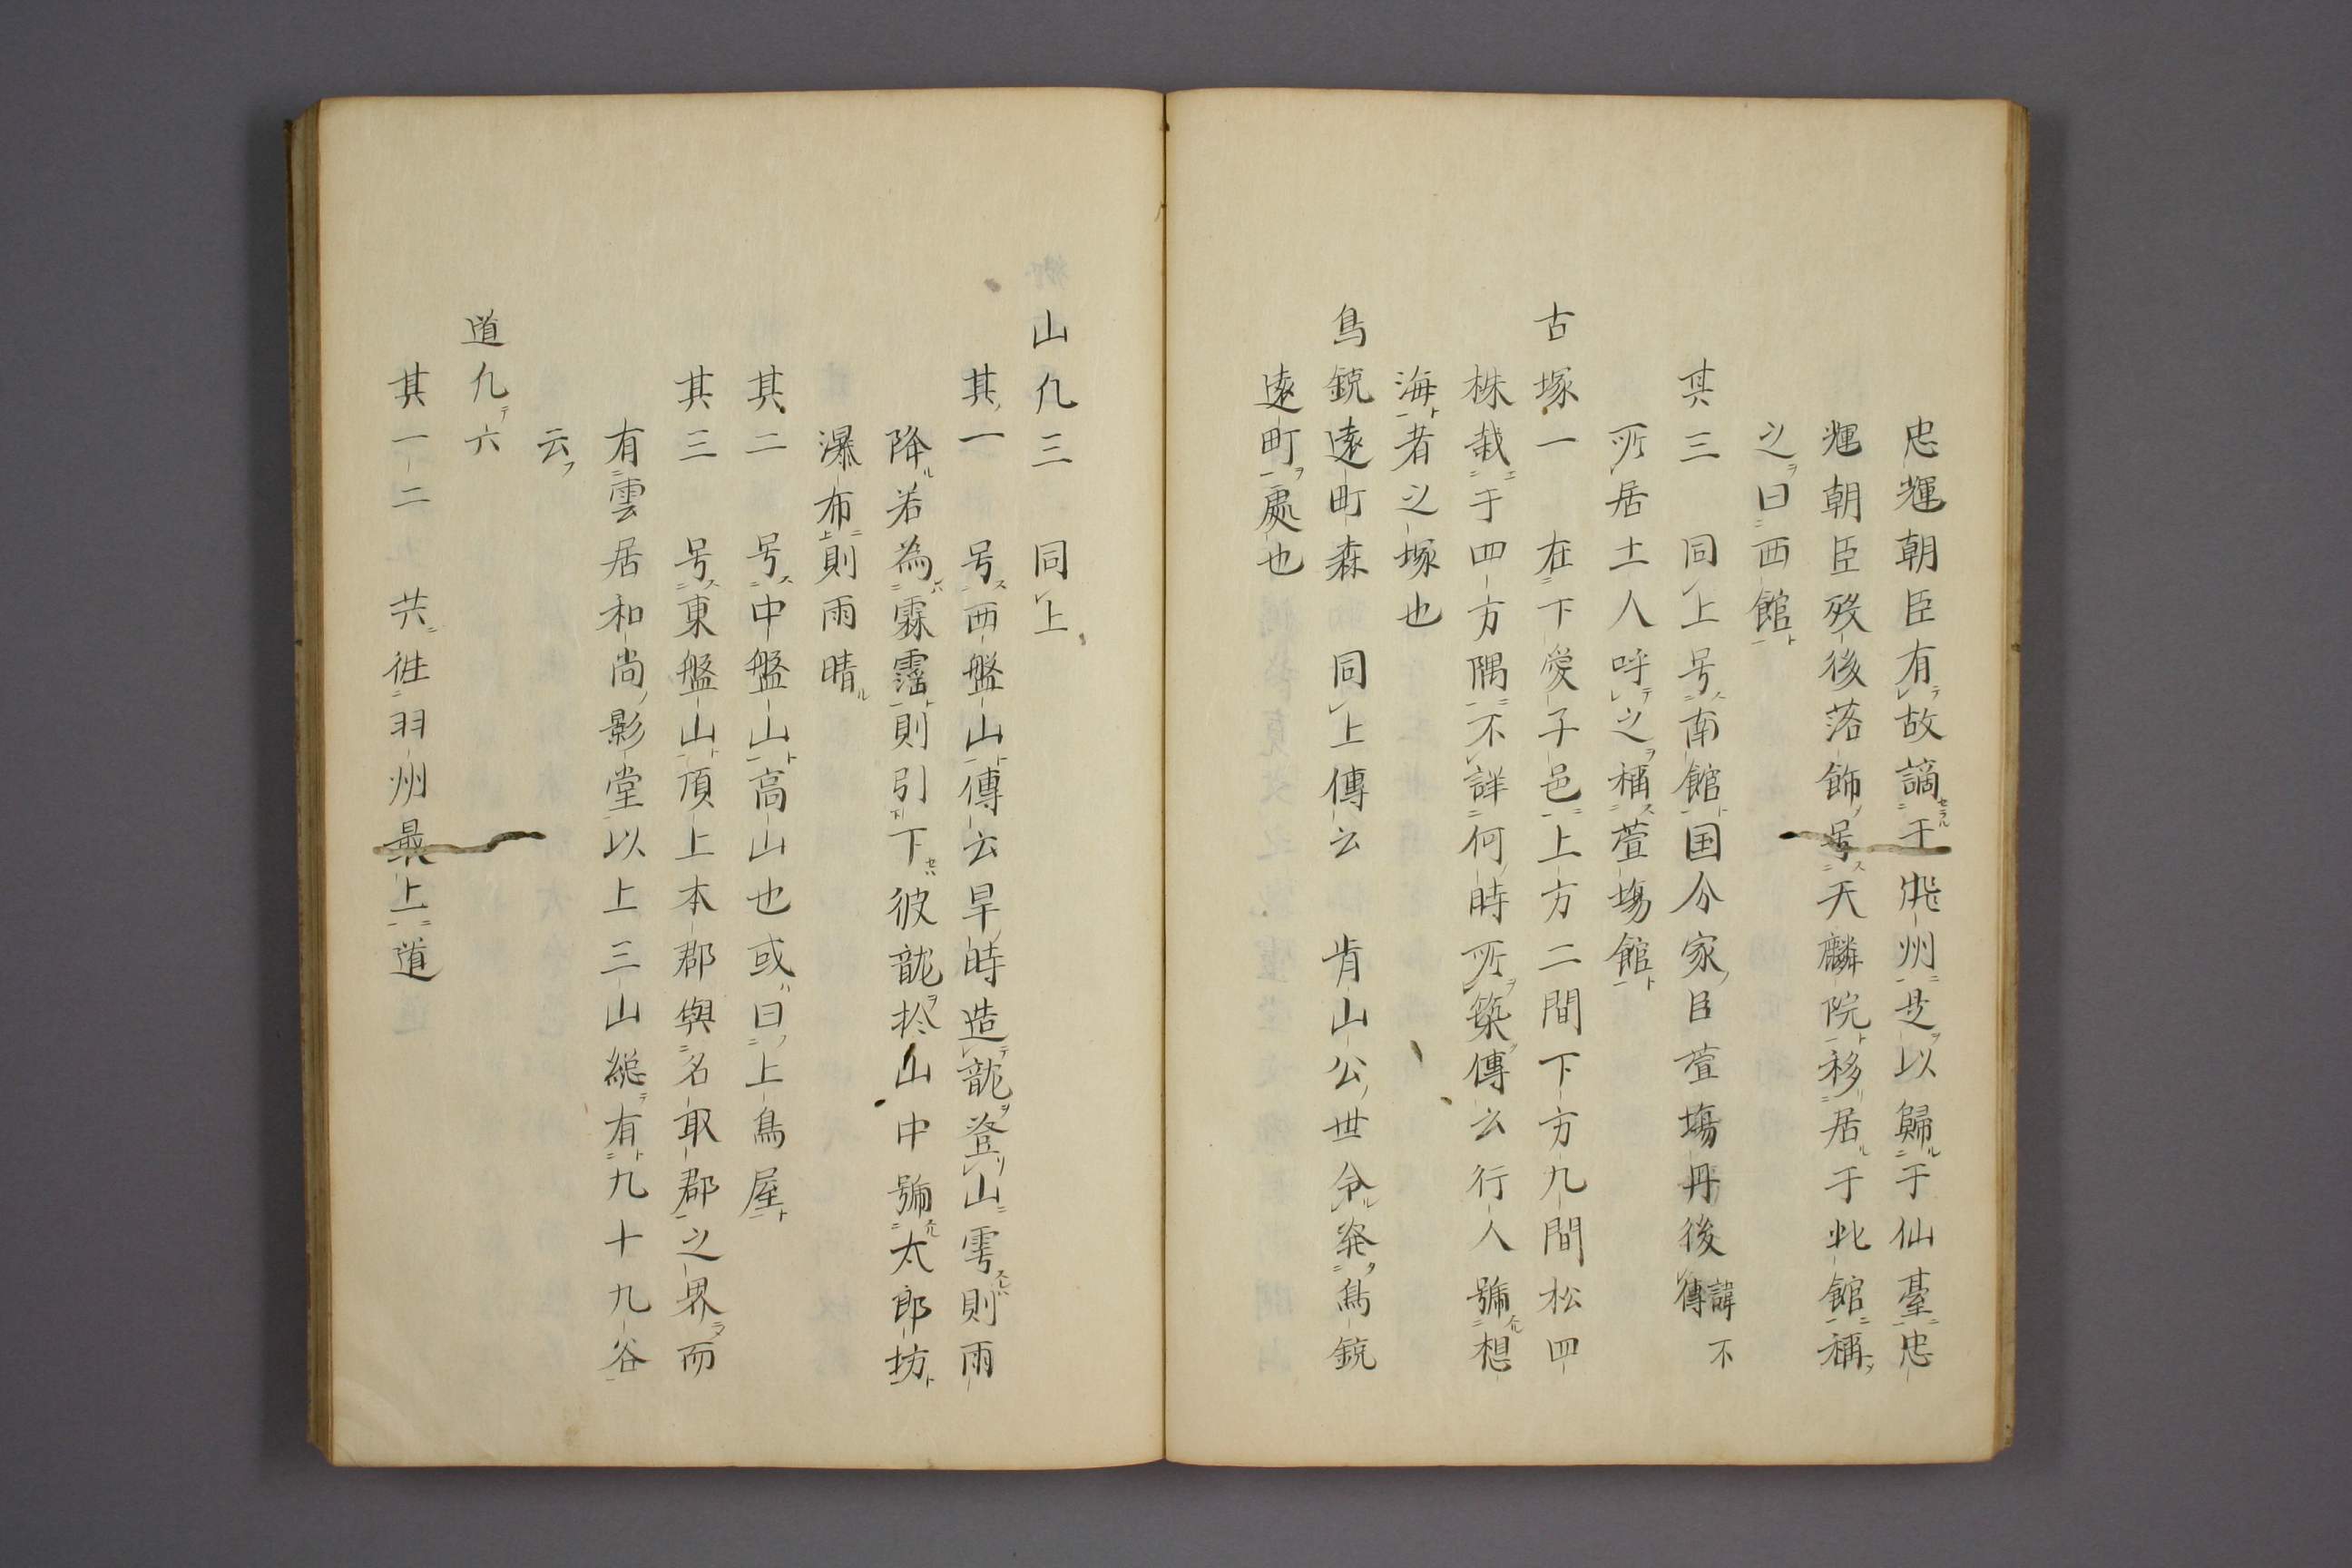 忠輝朝臣有故謫于飛州是以歸于仙臺忠
輝朝臣歿後落飾号天麟院移居于此館稱
之曰西館
其三 同上号南館国分家臣萱場丹後諱不傳
所居土人呼之稱萱場館
古塚一 在下愛子邑上方二間下方九間松四
株栽于四方隅不詳何時所築傳云行人號想
海者之塚也
鳥銃遠町森 同上傳云 肯山公世令発鳥銃
遠町處也
山凢三 同上
其一 号西盤山傳云旱時造龍登山雩則雨
降若為霖霪則引下彼龍於山中號太郎坊
瀑布則雨晴
其二 号中盤山高山也或曰上鳥屋
其三 号東盤山頂上本郡與名取郡之界而
有雲居和尚影堂以上三山総有九十九谷
云
道凢六
其一二 共徃羽州最上道